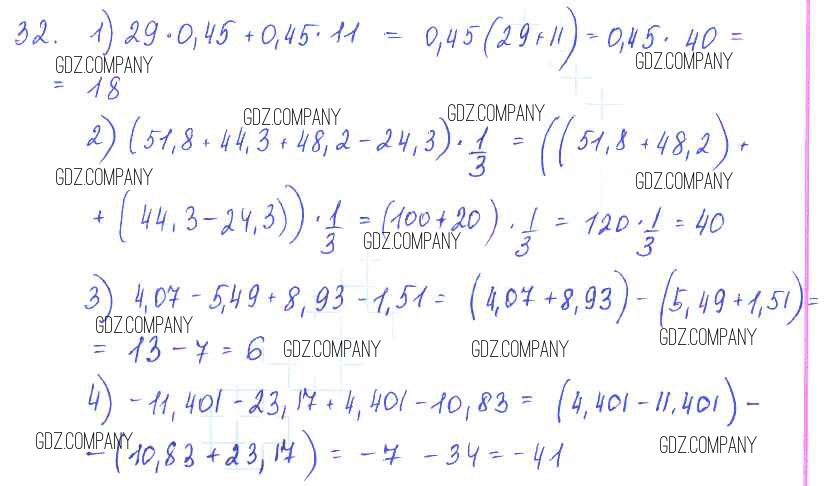 32. 1) 29·0,45+0,45·11 = 0,45(29+11)=0,45· 40 =
GDZ.COMPANY GDZ.COMPANY
= 18
GDZ.COMPANY GDZ.COMPANY
2) (51,8+44,3+48,2-24,3)·1/3 = ((51,8+48,2)+
GDZ.COMPANY GDZ.COMPANY
+(44,3-24,3))·1/3 =(100+20)·1/3 = 120·1/3 = 40
GDZ.COMPANY
3) 4,07-5,49+8,93-1,51= (4,07+8,93)-(5,49+1,51)=
GDZ.COMPANY GDZ.COMPANY
= 13-7=6 GDZ.COMPANY GDZ.COMPANY
4) -11,401-23,17+4,401-10,83= (4,401-11,401)-
GDZ.COMPANY GDZ.COMPANY
-(10,83+23,17)= -7 -34=-41